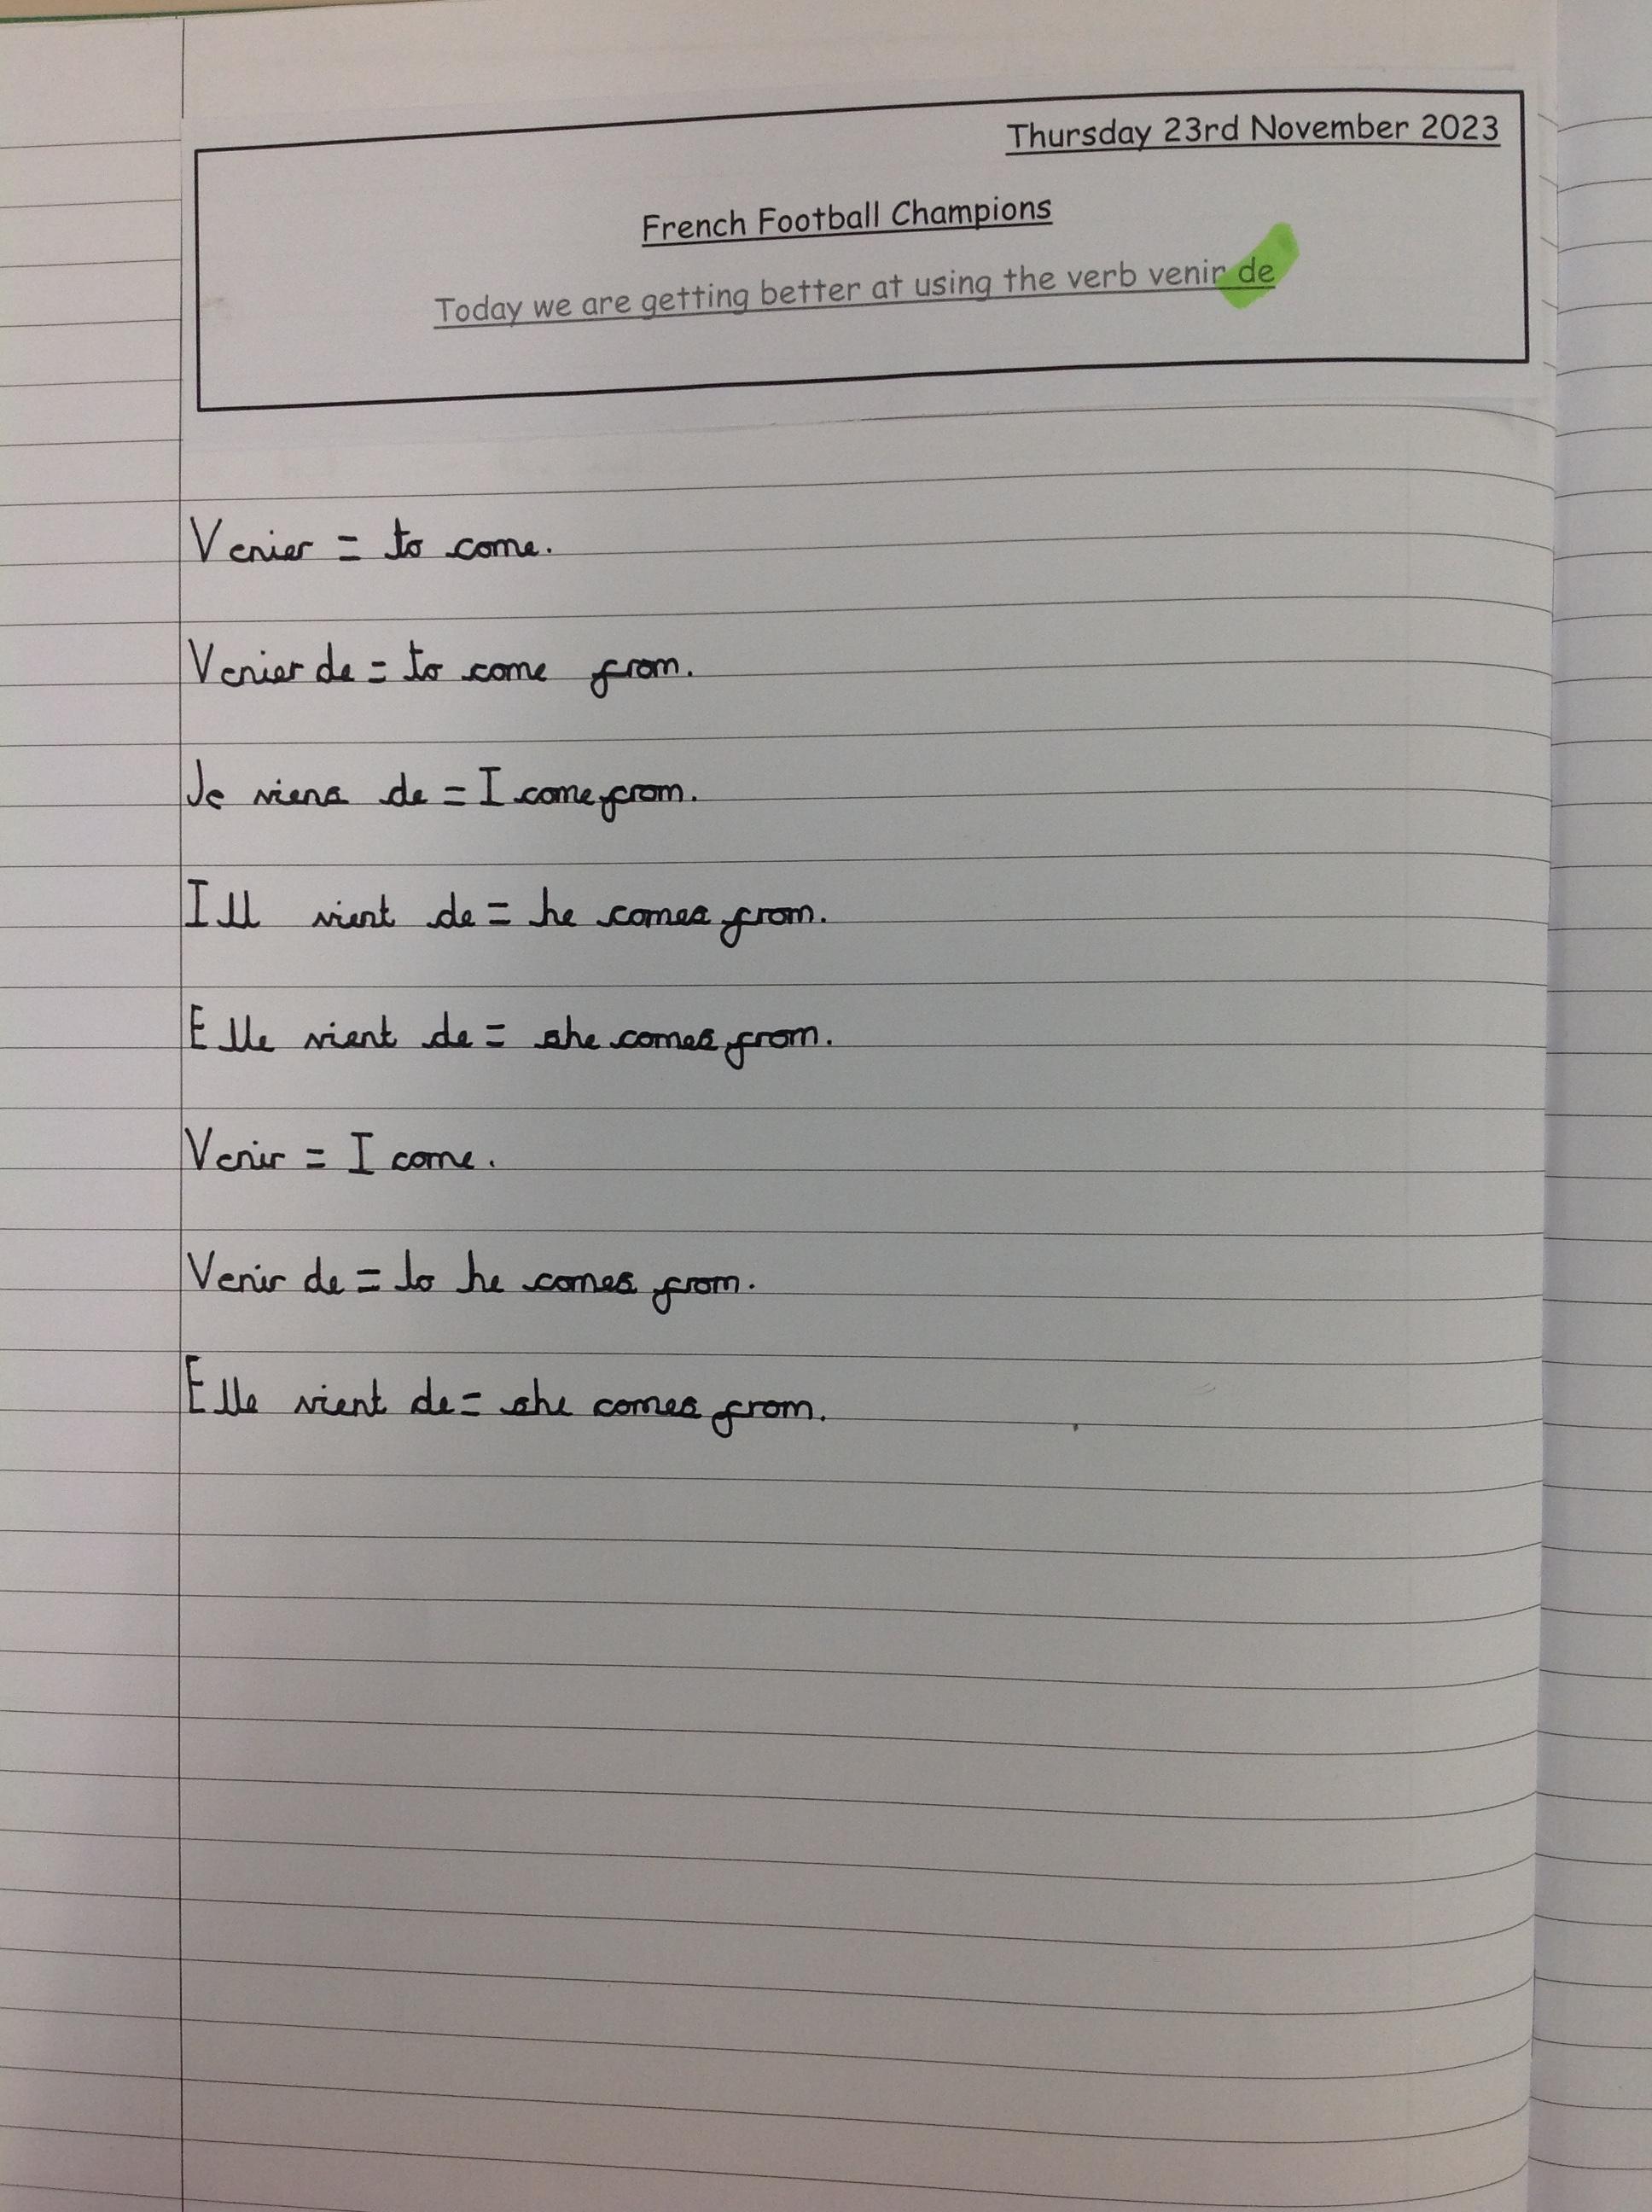 Thursday 23rd November 2023
French Football Champions
Today we are getting better at using the verb venir de
Venier = to come.
Venier de = to come from.
Je viens de = I come from.
Ill vient de = he comes from.
Elle vient de = she comes from.
Venir = I come.
Venir de = to he comes from.
Elle vient de = she comes from.